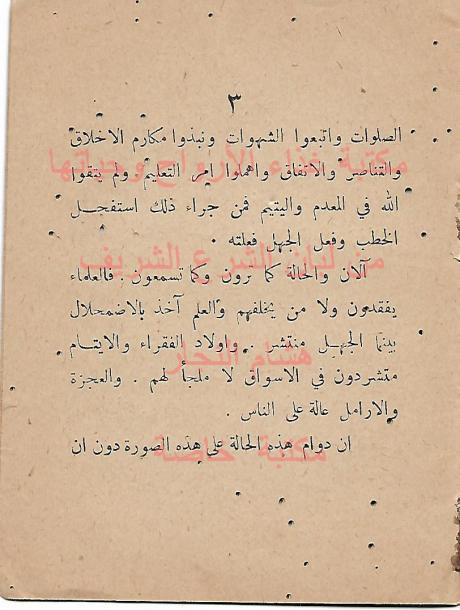 ٣
الصلوات واتبعوا الشهوات ونبذوا مكارم الاخلاق
والتناصر والاتفاق واهملوا امر التعليم ولم يتقوا
مكتبة غذاء الأرواح وحداثها
الله في المعدم واليتيم فمن جراء ذلك استفحل
الخطب وفعل الجهل فعلته .
من لبان الشرع الشريف
آلان والحالة كما ترون وكما تسمعون . فالعلماء
يفقدون ولا من يخلفهم والعلم آخذ بالاضمحلال
بينما الجهل منتشر . واولاد الفقراء والايتام
هشام النجار
متشردون في الاسواق لا ملجأ لهم . والعجزة
والارامل عالة على الناس .
ان دوام هذه الحالة على هذه الصورة دون ان
مكتبة خاصة